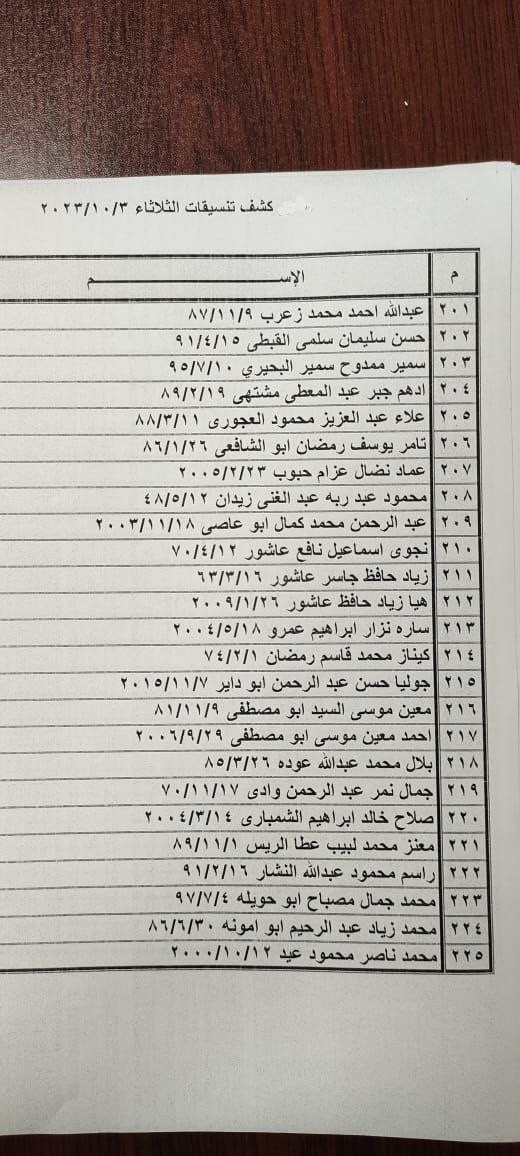 كشف تنسيقات الثلاثاء ٢٠٢٣/١٠/٣
م الإســـــــــــم
٢٠١ عبدالله احمد محمد زعرب ٨٧/١١/٩
٢٠٢ حسن سليمان سلمى القبطى ٩١/٤/١٥
٢٠٣ سمير ممدوح سمير البحيري ٩٥/٧/١٠
٢٠٤ ادهم جبر عبد المعطى مشتهى ٨٩/٢/١٩
٢٠٥ علاء عبد العزيز محمود العجورى ٨٨/٣/١١
٢٠٦ تامر يوسف رمضان ابو الشافعى ٨٦/١/٢٦
٢٠٧ عماد نضال عزام حبوب ٢٠٠٥/٢/٢٣
٢٠٨ محمود عبد ربه عبد الغنى زيدان ٤٨/٥/١٢
٢٠٩ عبد الرحمن محمد كمال ابو عاصى ٢٠٠٣/١١/١٨
٢١٠ نجوى اسماعيل نافع عاشور ٧٠/٤/١٢
٢١١ زياد حافظ جاسر عاشور ٦٣/٣/١٦
٢١٢ هيا زياد حافظ عاشور ٢٠٠٩/١/٢٦
٢١٣ ساره نزار ابراهيم عمرو ٢٠٠٤/٥/١٨
٢١٤ كيناز محمد قاسم رمضان ٧٤/٢/١
٢١٥ جوليا حسن عبد الرحمن ابو داير ٢٠١٥/١١/٧
٢١٦ معين موسى السيد ابو مصطفى ٨١/١١/٩
٢١٧ احمد معين موسى ابو مصطفى ٢٠٠٦/٩/٢٩
٢١٨ بلال محمد عبدالله عوده ٨٥/٣/٢٦
٢١٩ جمال نمر عبد الرحمن وادى ٧٠/١١/١٧
٢٢٠ صلاح خالد ابراهيم الشمبارى ٢٠٠٤/٣/١٤
٢٢١ معتز محمد لبيب عطا الريس ٨٩/١١/١
٢٢٢ راسم محمود عبدالله النشار ٩١/٢/١٦
٢٢٣ محمد جمال مصباح ابو حويله ٩٧/٧/٤
٢٢٤ محمد زياد عبد الرحيم ابو امونه ٨٦/٦/٣٠
٢٢٥ محمد ناصر محمود عيد ٢٠٠٠/١٠/١٢